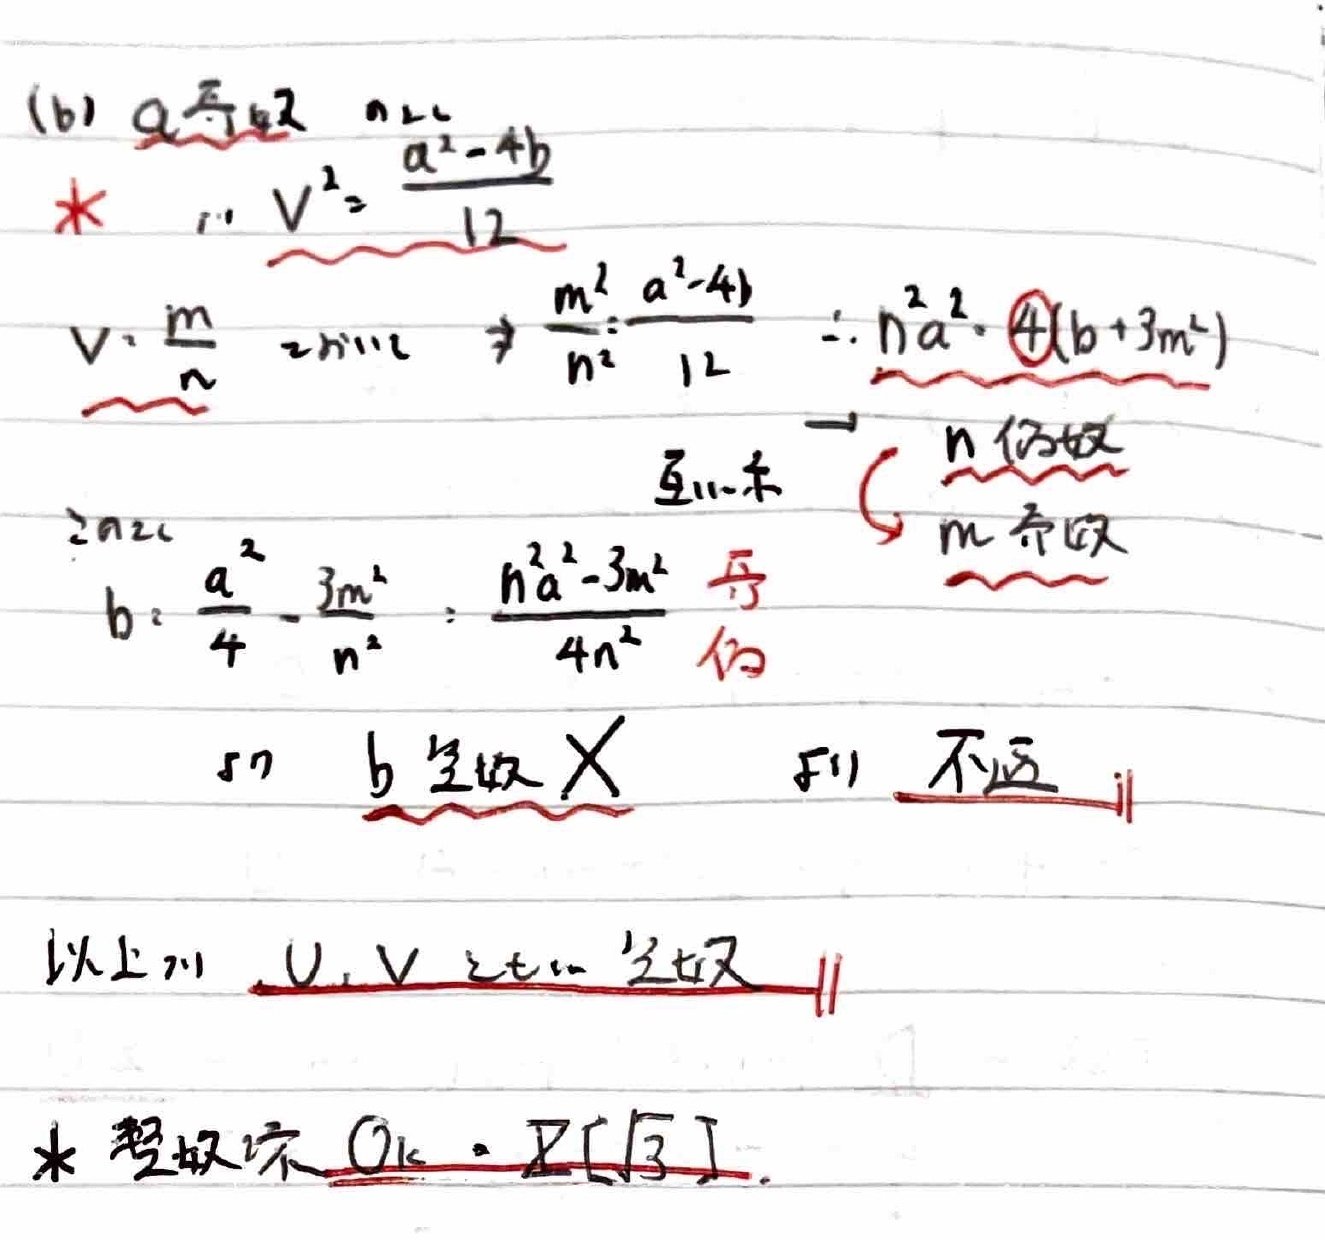 (b) a奇数 のとき
* … V² = (a² - 4b)/12
V = m/n とおいて ⇒ m²/n² = (a² - 4b)/12 ∴ n²a² = 4(b + 3m²)
→ n 偶数
互いに素 m 奇数
このとき
b = a²/4 - 3m²/n² = (n²a² - 3m²)/4n² 奇 偶
より b 整数 X より 不適
以上より U, V ともに 整数
* 整数環 Ok = Z[√3].